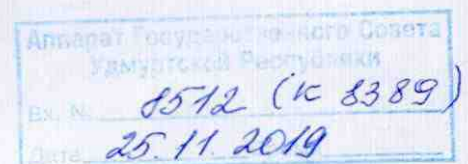 Аппарат Государственного Совета
Удмуртской Республики
Вх. № 8512 (к 8389)
Дата 25.11.2019